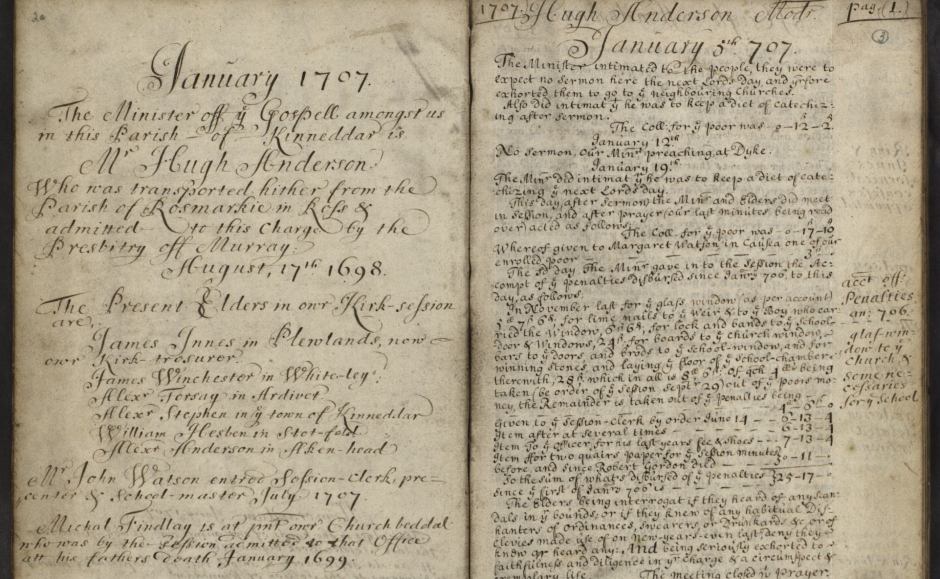 January 1707.
The Minister off yͤ Gospell amongst us
in this Parish of Kinneddar is
Mr Hugh Anderson
Who was transported hither from the
Parish of Rosmarkie in Ross &
admitted to this Charge by the
Presbitry off Murray.
August, 17th 1698.
The Present Elders in owr Kirk-session
are,
James Innes in Plewlands, now
owr Kirk-tresurer
James Winchester in White-ley
Alexr Torsay in Ardivet
Alexr Stephen in yͤ town of Kinneddar
William Hesben in Stot-fold
Alexr Anderson in Aken-head
Mr John Watson entred Session-Clerk, pre-
center & School-master July 1707.
Michal Findlay is at pnt owr Church beddal
who was by the session admitted to that Office
att his fathers death January 1699.
1707. Hugh Anderson Modr. pag. (1.)
January 5th 707.
The Minister intimated to the people, they were to
expect no sermon here the next Lords day and yrfore
exhorted them to go to yͤ neighbouring Churches.
Also did intimat yͭ he was to keep a diet of catechiz-
ing after sermon.
The Coll: for yͤ poor was 0-12-2.
January 12th
No sermon, our Minr preaching at Dyke.
January 19th
The Minr did intimat yͭ he was to keep a diet of cate-
chizing yͤ next Lords day.
This day after sermon the Minr and Elders did meet
in session, and after prayer (our last minutes being read
over) acted as follows.
The Coll. for yͤ poor was 0-17-10
Whereof given to Margaret Watson in Causea one of our
enrolled poor
The sd day The Minr gave in to the session the Ac-
compt of yͤ penalties disbursed since Janry 706 to this
day, as follows.
In November last for yͤ glass window (as per account)
for lime nails to yͤ weir & to yͤ boy who car-
ried the window, for lock and bands to yͤ school-
door & windows, for boards to yͤ church window,
bars to yͤ doors, and brods to yͤ school-window, and for
winning stones, and laying yͤ floor of yͤ school-chamber
therewith, which in all is being
taken (be order of yͤ session Septr 29) out of yͤ poors mo-
ney, the Remainder is taken out of yͤ penalties being
Given to yͤ session-Clerk by order June 14
Item after at several times 6-13-4
Item To yͤ officer for his last years fee & shoes 7-13-4
Item for two quairs paper for yͤ session minutes
before, and since Robert Gordon died 0-11-
To the sum of what's disbursed of yͤ penalties 25-17-
since yͤ first of Janry 706 is
The Elders being interrogat if they heard of any scan-
dals in yͤ bounds, or if they knew of any habitual Dis-
hanters of ordinances, swearers, or Drunkards &c, or of
Clevies made use of on New-years-even last deny they
know or heard any. And being seriously exhorted to
faithfulness and diligence in yr Charge & a circumspect &
exemplary life. The meeting closed wt prayer.
acct off
Penalties
an: 706.
glas win-
dow to yͤ
Church, &
some ne-
cessaries
for yͤ school